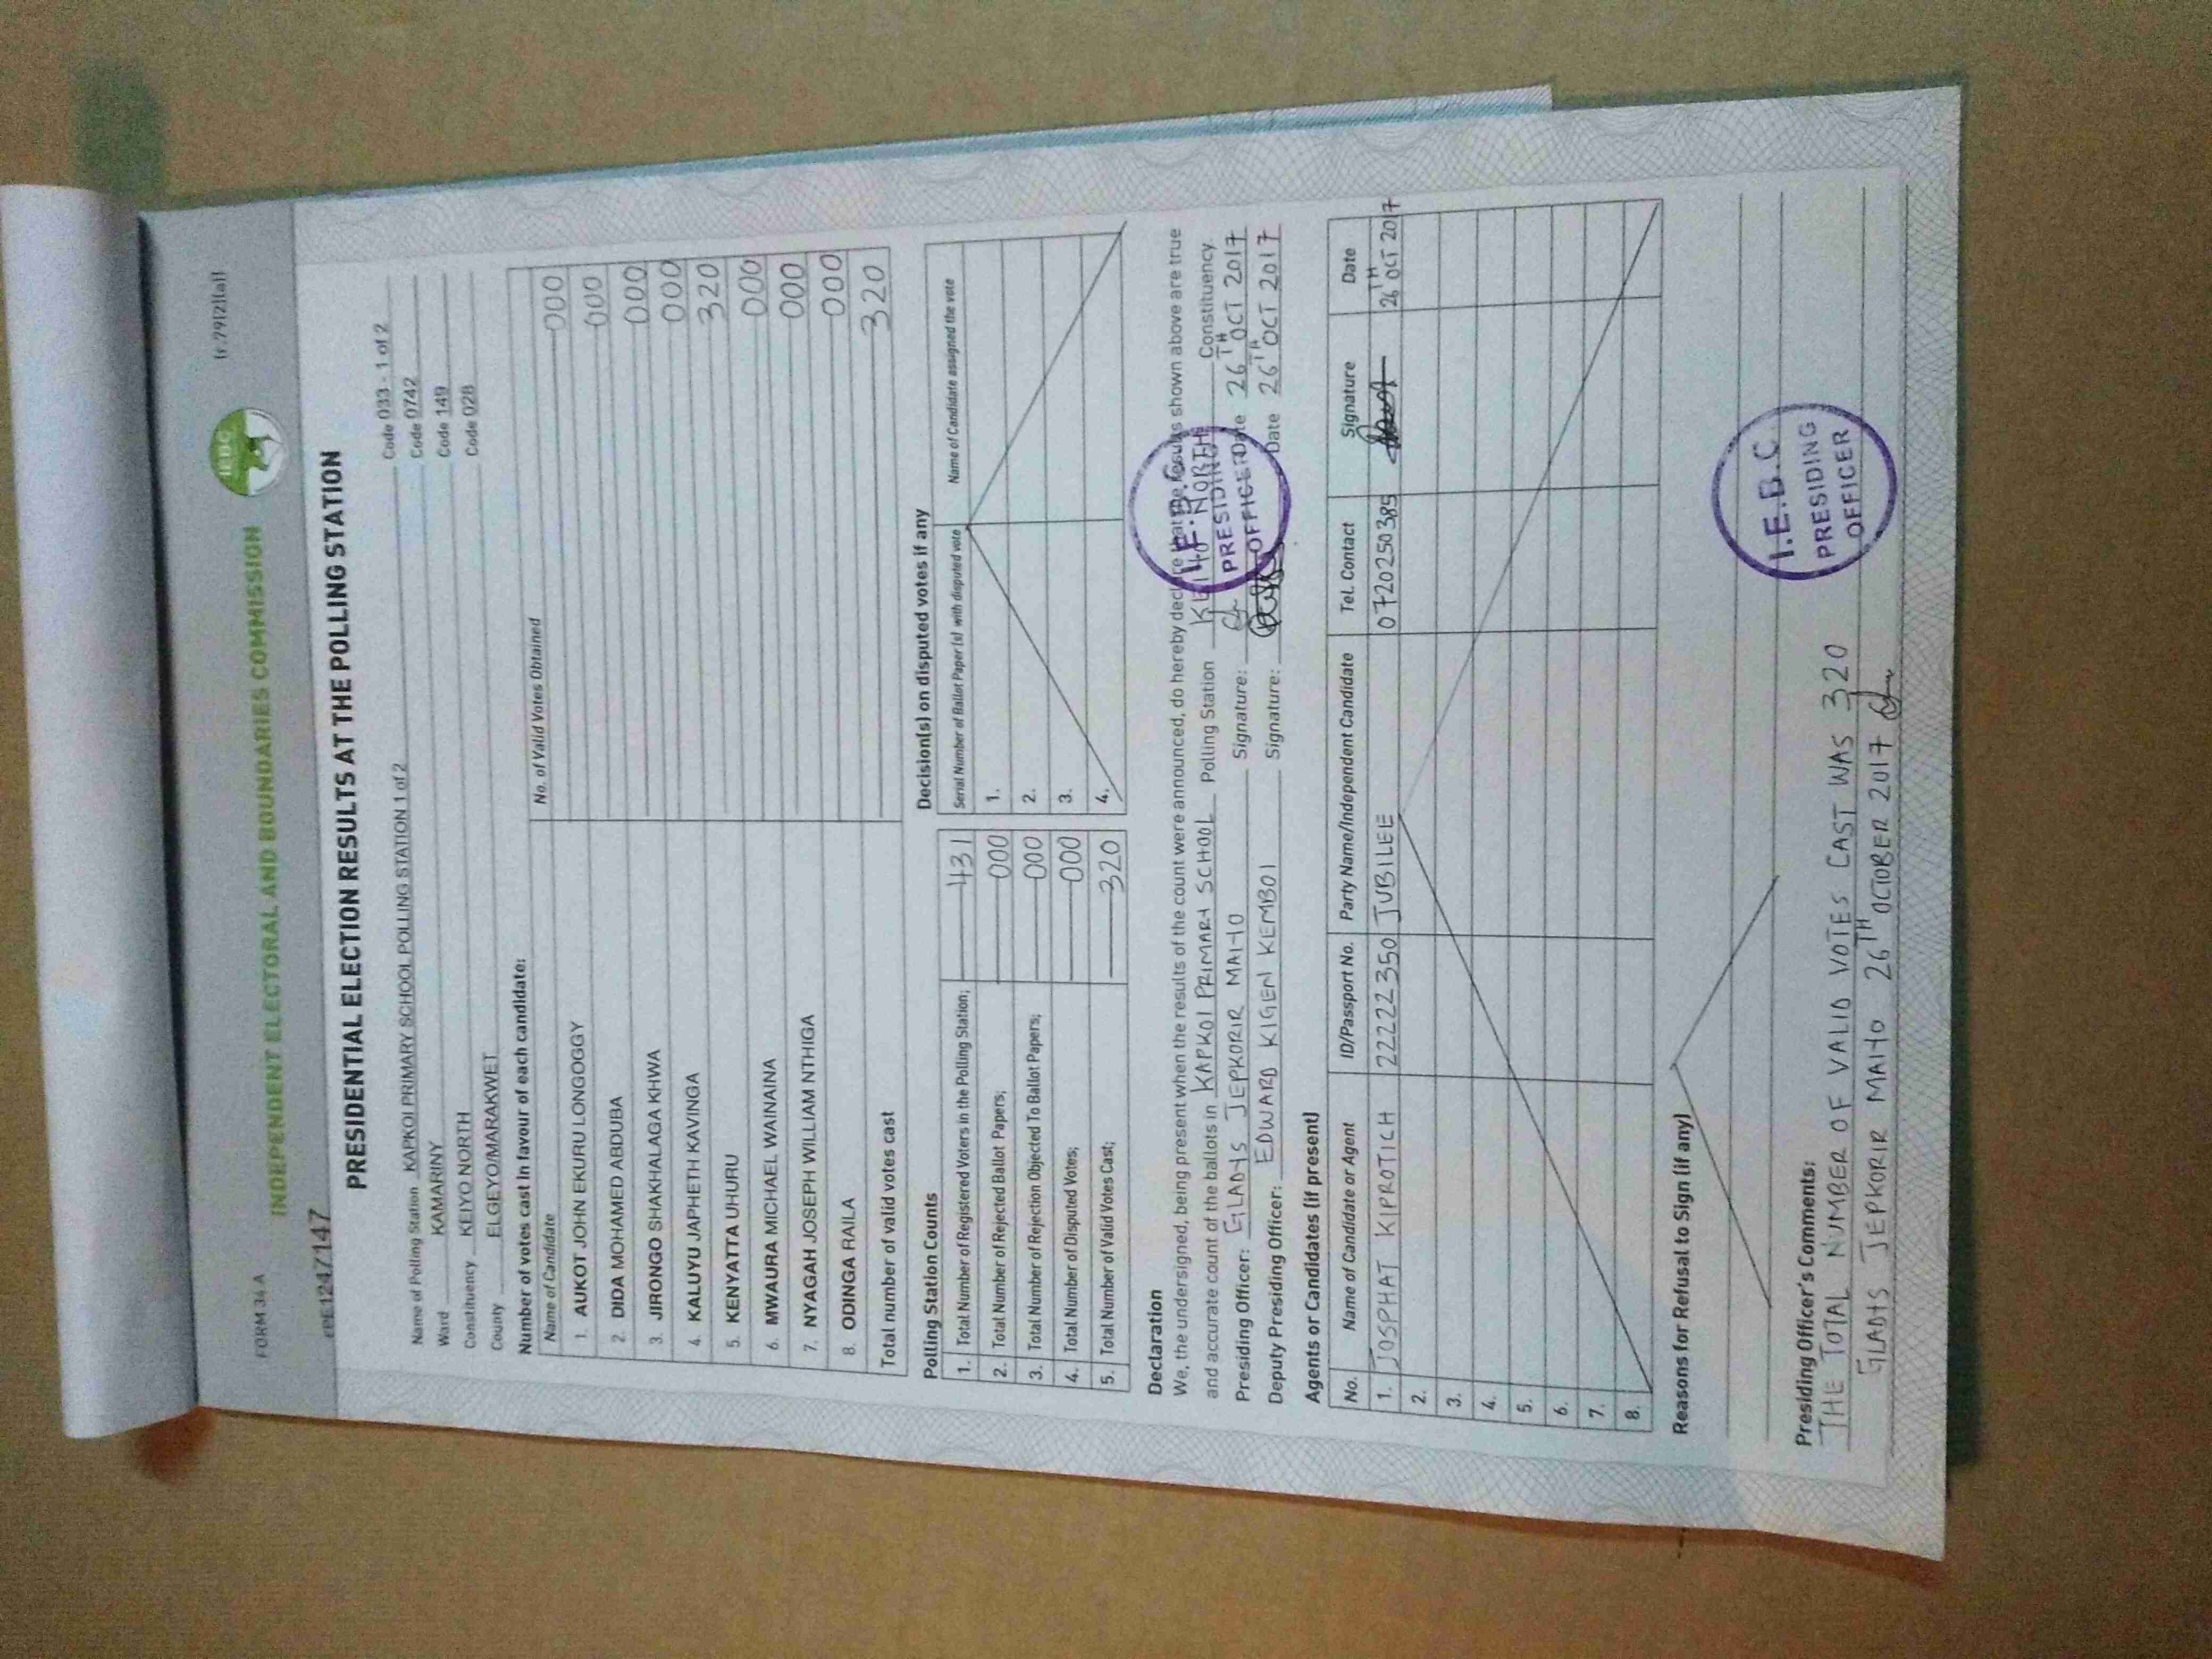 FORM 34 A
(r.79(2)(a))
IEBC
INDEPENDENT ELECTORAL AND BOUNDARIES COMMISSION
PRESIDENTIAL ELECTION RESULTS AT THE POLLING STATION
Name of Polling Station KAPKOI PRIMARY SCHOOL POLLING STATION 1 of 2 Code 033 - 1 of 2
Ward KAMARINY Code 0742
Constituency KEIYO NORTH Code 149
County ELGEYO/MARAKWET Code 028
Number of votes cast in favour of each candidate:
Name of Candidate No. of Valid Votes Obtained
1. AUKOT JOHN EKURU LONGOGGY 000
2. DIDA MOHAMED ABDUBA 000
3. JIRONGO SHAKHALAGA KHWA 000
4. KALUYU JAPHETH KAVINGA 000
5. KENYATTA UHURU 320
6. MWAURA MICHAEL WAINAINA 000
7. NYAGAH JOSEPH WILLIAM NTHIGA 000
8. ODINGA RAILA 000
Total number of valid votes cast 320
Polling Station Counts
1. Total Number of Registered Voters in the Polling Station; 431
2. Total Number of Rejected Ballot Papers; 000
3. Total Number of Rejection Objected To Ballot Papers; 000
4. Total Number of Disputed Votes; 000
5. Total Number of Valid Votes Cast; 320
Decision(s) on disputed votes if any
Serial Number of Ballot Paper(s) with disputed vote Name of Candidate assigned the vote
1.
2.
3.
4.
Declaration
We, the undersigned, being present when the results of the count were announced, do hereby declare that the results shown above are true
and accurate count of the ballots in KAPKOI PRIMARY SCHOOL Polling Station KEIYO NORTH Constituency
Presiding Officer: GLADYS JEPKORIR MAIYO Signature: Date 26TH OCT 2017
Deputy Presiding Officer: EDWARD KIGEN KEMBOI Signature: Date 26TH OCT 2017
I.E.B.C
PRESIDING
OFFICER
Agents or Candidates (if present)
No. Name of Candidate or Agent ID/Passport No. Party Name/Independent Candidate Tel. Contact Signature Date
1. JOSPHAT KIPROTICH 22222350 JUBILEE 0720250385 26TH OCT 2017
2.
3.
4.
5.
6.
7.
8.
Reasons for Refusal to Sign (if any)
Presiding Officer's Comments:
THE TOTAL NUMBER OF VALID VOTES CAST WAS 320
GLADYS JEPKORIR MAIYO 26TH OCTOBER 2017
I.E.B.C
PRESIDING
OFFICER